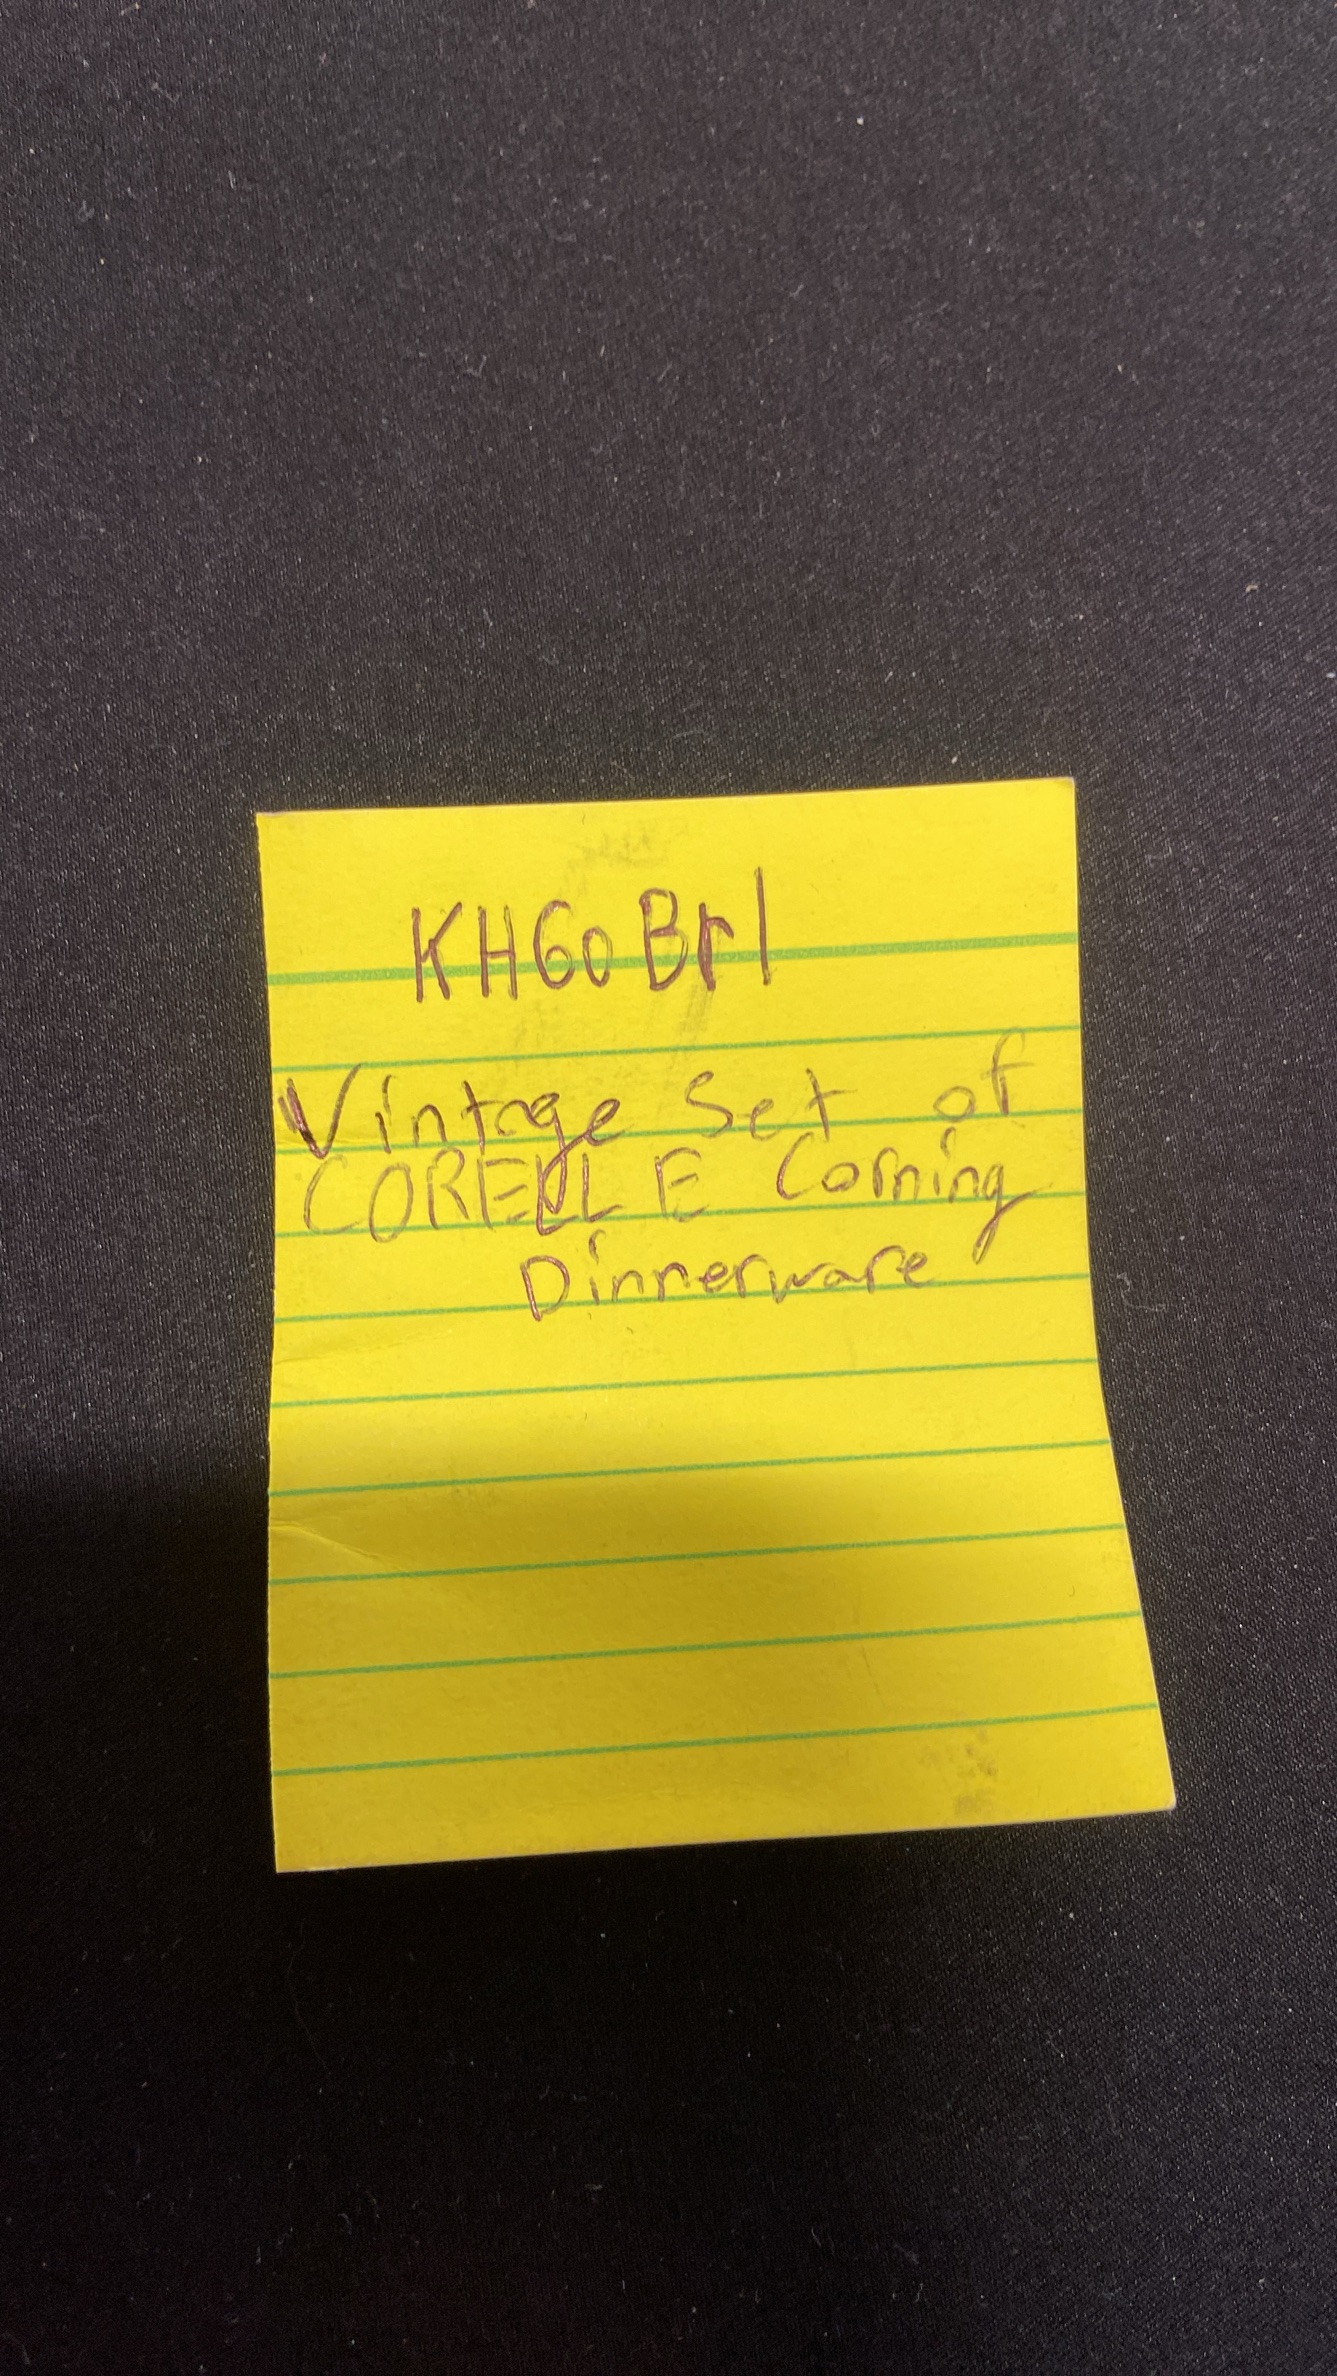 KHGoBr1
Vintage Set of
CORELLE Corning
Dinnerware